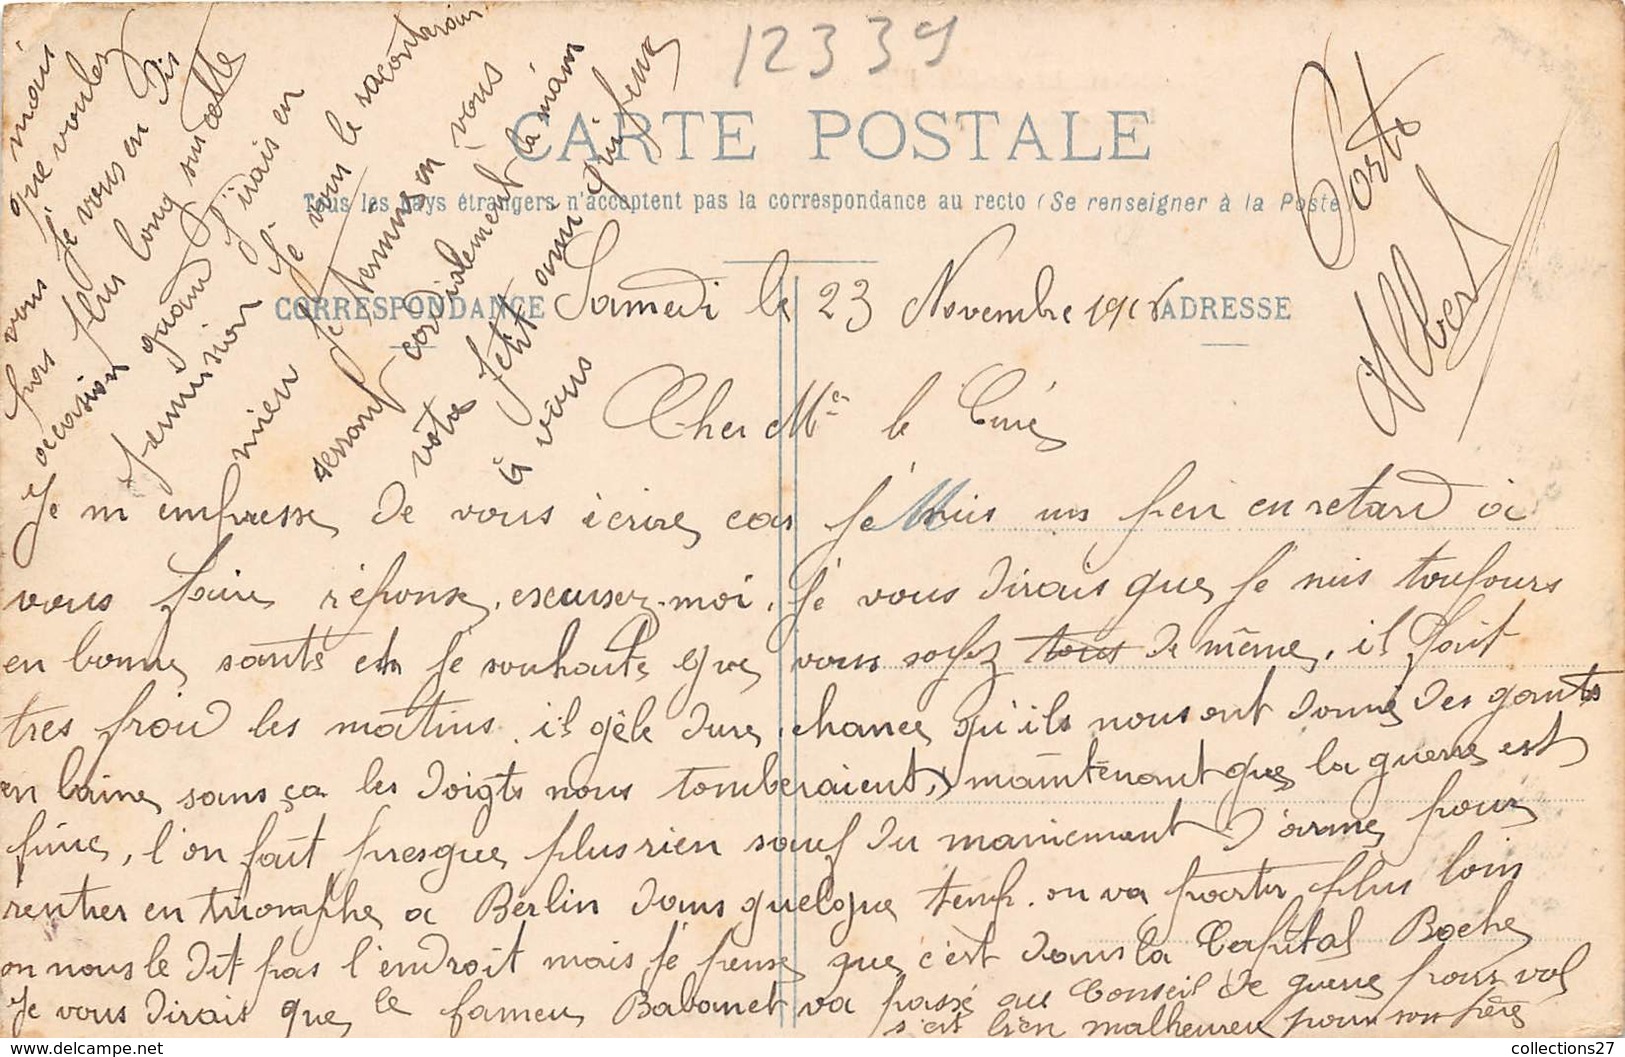 12339
CARTE POSTALE
Tous les pays étrangers n'acceptent pas la correspondance au recto (Se renseigner à la Poste
CORRESPONDANCE
ADRESSE
Samedi le 23 Novembre 1918
Cher Mr le Curé
Je m'empresse de vous écrire car je suis un peu en retard à
vous faire réponse, excusez-moi, je vous dirais que je suis toujours
en bonne santé et je souhaite que vous soyez tous de même, il fait
très froid les matins, il gèle dure, chance qu'ils nous ont donné des gants
en laine, sans ça les doigts nous tomberaient, maintenant que la guerre est
finie, l'on fait presque plus rien sauf du maniement d'arme pour
rentrer en triomphe a Berlin dans quelque temp. on va partir plus loin
on nous le dit pas l'endroit mais je pense que c'est dans la Capital Boche
Je vous dirais que le fameu Babanet va passé au Conseil de guerre pour vol
s'est bien malheureu pour son père
mais
que voulez
vous je vous en dis
pas plus long sur cette
occasion quand j'irais en
permission je vous le raconterais
mieu je termine en vous
serrant cordialement la main
votre petit ami qui pense
à vous
Porte
Albert
collections27